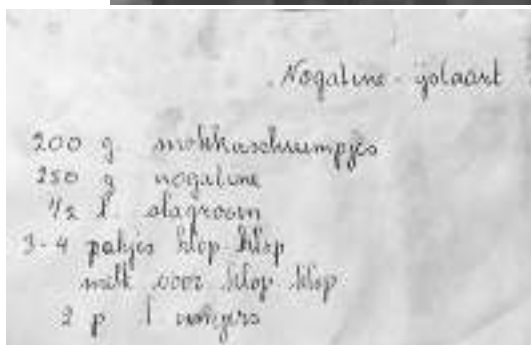 Nogatine - ijstaart
200 g. mokkaschuimpjes
250 g nogatine
1/2 l. slagroom
3-4 pakjes klop-klop
melk voor klop klop
2 p l